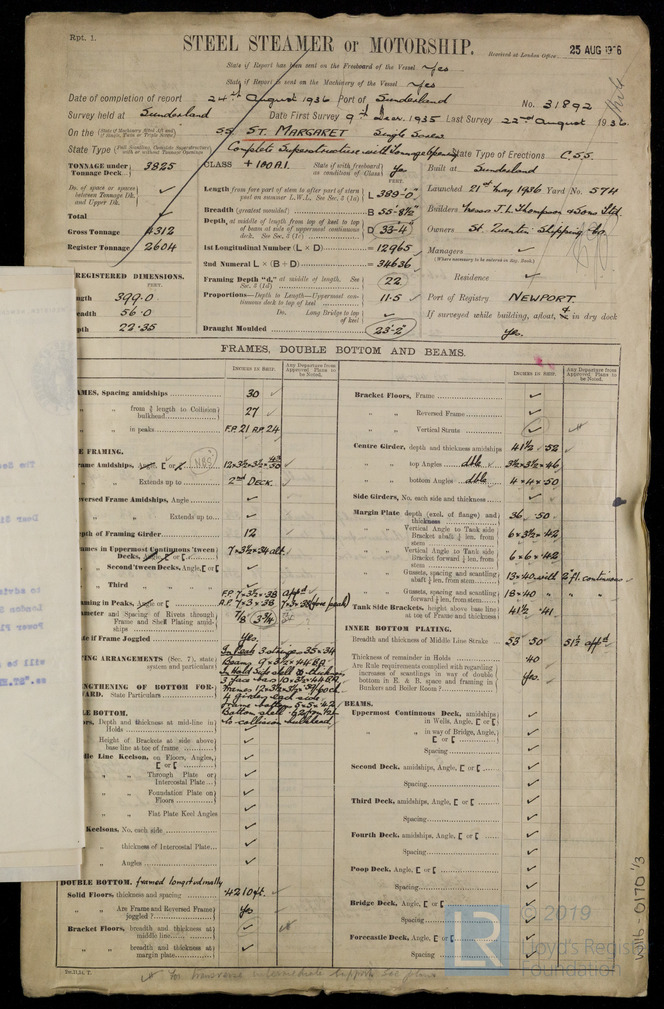 Rpt. 1.
STEEL STEAMER or MOTORSHIP.
Received at London Office
25 AUG 1936
State if Report has been sent on the Freeboard of the Vessel Yes
State if Report is sent on the Machinery of the Vessel Yes
Date of completion of report 24th August 1936 Port of Sunderland No. 31892
Survey held at Sunderland Date First Survey 9th Decr. 1935 Last Survey 22nd August 1936
On the SS. ST. MARGARET Single Screw
State Type Complete Superstructure with Tonnage Opening State Type of Erections C.S.S.
TONNAGE under Tonnage Deck 3825
CLASS + 100 A.1. State if with freeboard as condition of Class Yes
Built at Sunderland
Do. of space or spaces between Tonnage Deck and Upper Dk.
Total
Gross Tonnage 4312
Register Tonnage 2604
Length from fore part of stem to after part of stern post on summer L.W.L. See Sec. 3 (1a) L 389'-0"
Breadth (greatest moulded) B 55'-8½"
Depth, at middle of length from top of keel to top of beam at side of uppermost continuous deck. See Sec. 3 (1c) D 33'-4"
1st Longitudinal Number (L × D) = 12965
2nd Numeral L × (B + D) = 34636
Framing Depth "d," at middle of length. See Sec. 3 (1d) 22
Proportions—Depth to Length—Uppermost continuous deck to top of keel 11.5
Do. Long Bridge to top of keel
Draught Moulded 23'-2"
Launched 21st May 1936 Yard No. 574
Builders Messrs J. L. Thompson & Sons Ltd.
Owners St. Quentin Shipping Co.
Managers
(Where necessary to be entered in Reg. Book)
Residence
Port of Registry NEWPORT.
If surveyed while building, afloat, & in dry dock
Yes.
REGISTERED DIMENSIONS.
FEET.
ength 399.0
eadth 56.0
pth 22.35
FRAMES, DOUBLE BOTTOM AND BEAMS.
INCHES IN SHIP.
Any Departure from Approved Plans to be Noted.
INCHES IN SHIP.
Any Departure from Approved Plans to be Noted.
AMES, Spacing amidships 30
" " from ⅕ length to Collision bulkhead 27
" " in peaks F.P. 21 A.P. 24
E FRAMING.
rame Amidships, Angle, [ or [ 12×3½×3½×
" " Extends up to 2nd DECK
eversed Frame Amidships, Angle
" " Extends up to
epth of Framing Girder 12
ames in Uppermost Continuous 'tween Decks, Angle, [ or [ 7×3½×34 alt.
" Second 'tween Decks, Angle, [ or [
" Third " " "
aming in Peaks, Angle or [ F.P. 7×3½×38 appd
A.P. 7×3×38 (fore peak)
ameter and Spacing of Rivets through Frame and Shell Plating amidships 7/8 (3¾)
ate if Frame Joggled Yes.
ING ARRANGEMENTS (Sec. 7), state system and particulars
ENGTHENING OF BOTTOM FORARD. State Particulars
In Peak 3 stringers 35×34
Beams 9×3½×44 BA
to collision bulkhead
LE BOTTOM.
rs, Depth and thickness at mid-line in Holds
Height of Brackets at side above base line at toe of frame
le Line Keelson, on Floors, Angles, [ or [
" " Through Plate or Intercostal Plate
" " Foundation Plate on Floors
" " Flat Plate Keel Angles
Keelsons, No. each side
" thickness of Intercostal Plate
" Angles
DOUBLE BOTTOM. framed longitudinally
Solid Floors, thickness and spacing 42 10ft.
" " Are Frame and Reversed Frame joggled? Yes
Bracket Floors, breadth and thickness at middle line
" " breadth and thickness at margin plate
Bracket Floors, Frame
" " Reversed Frame
" " Vertical Struts
Centre Girder, depth and thickness amidships 41½ × 52
" " top Angles dble 3½×3½×46
" " bottom Angles dble 4×4×50
Side Girders, No. each side and thickness
Margin Plate depth (excl. of flange) and thickness 36 .50
" " Vertical Angle to Tank side Bracket abaft ¼ len. from stem 6×3½×42
" " Vertical Angle to Tank side Bracket forward ¼ len. from stem 6×6×42
" " Gussets, spacing and scantling abaft ¼ len. from stem 13×40 with 2 fl. continuous
" " Gussets, spacing and scantling forward ¼ len. from stem 18×40 " "
Tank Side Brackets, height above base line at toe of Frame and thickness 41½ .41
INNER BOTTOM PLATING.
Breadth and thickness of Middle Line Strake 53 .50 51½ appd
Thickness of remainder in Holds .40
Are Rule requirements complied with regarding increases of scantlings in way of double bottom in E. & B. space and framing in Bunkers and Boiler Room? Yes.
BEAMS.
Uppermost Continuous Deck, amidships in Wells, Angle, [ or [
" " in way of Bridge, Angle, [ or [
Spacing
Second Deck, amidships, Angle, [ or [
Spacing
Third Deck, amidships, Angle, [ or [
Spacing
Fourth Deck, amidships, Angle, [ or [
Spacing
Poop Deck, Angle, [ or [
Spacing
Bridge Deck, Angle, [ or [
Spacing
Forecastle Deck, Angle, [ or [
Spacing
for transverse intermediate supports see plans
W116-0170 1/3
LR
© 2019
Lloyd's Register
Foundation